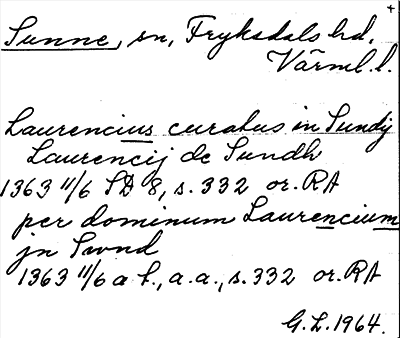 Sunne, sn, Fryksdals hd,
Värml. l.
Laurencius curatus in Sundij
Laurencij de Sundh
1363 11/6 SD 8, s. 332 or. RA
per dominum Laurencium
jn Swnd
1363 11/6 a st., a.a., s. 332 or. RA
G. L. 1964.